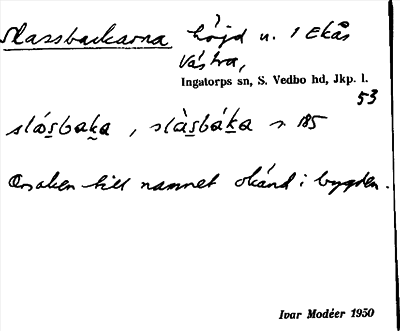 Slassbackarna höjd u. 1 Ekås
Västra,
Ingatorps sn, S. Vedbo hd, Jkp. l.
53
slásbaka, slàsbáka s 185
Orsaken till namnet okänd i bygden.
Ivar Modéer 1950